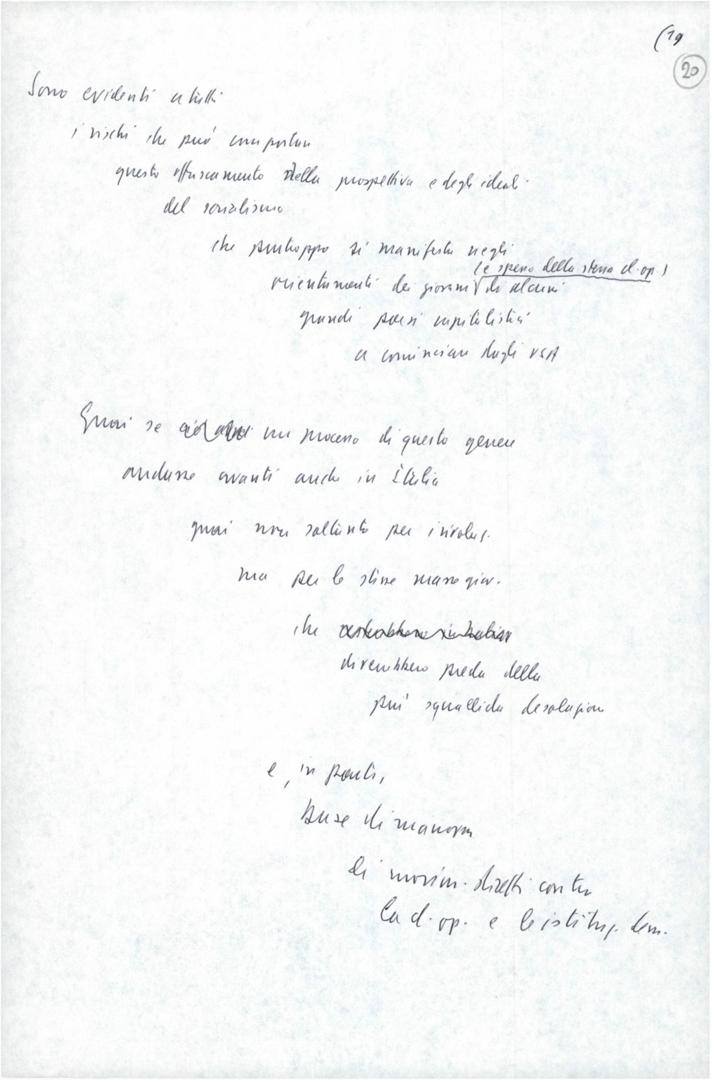 (19
20
Sono evidenti a tutti
i rischi che può comportare
questo offuscamento della prospettiva e degli ideali
del socialismo
che purtroppo si manifesta negli
(e spesso della stessa cl. op.)
orientamenti dei giovani di alcuni
grandi paesi capitalistici
a cominciare dagli USA
Guai se un processo di questo genere
andasse avanti anche in Italia
guai non soltanto per i rivoluz.
ma per le stesse masse giov.
che
diverrebbero preda della
più squallida desolazione
e, in parte,
base di manovra
di movim. diretti contro
la cl. op. e le istituz. dem.